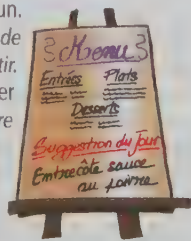 un.
de
tir.
er
re
Menu
Entrées Plats
Desserts
Suggestion du Jour
Entrecôte sauce
au poivre